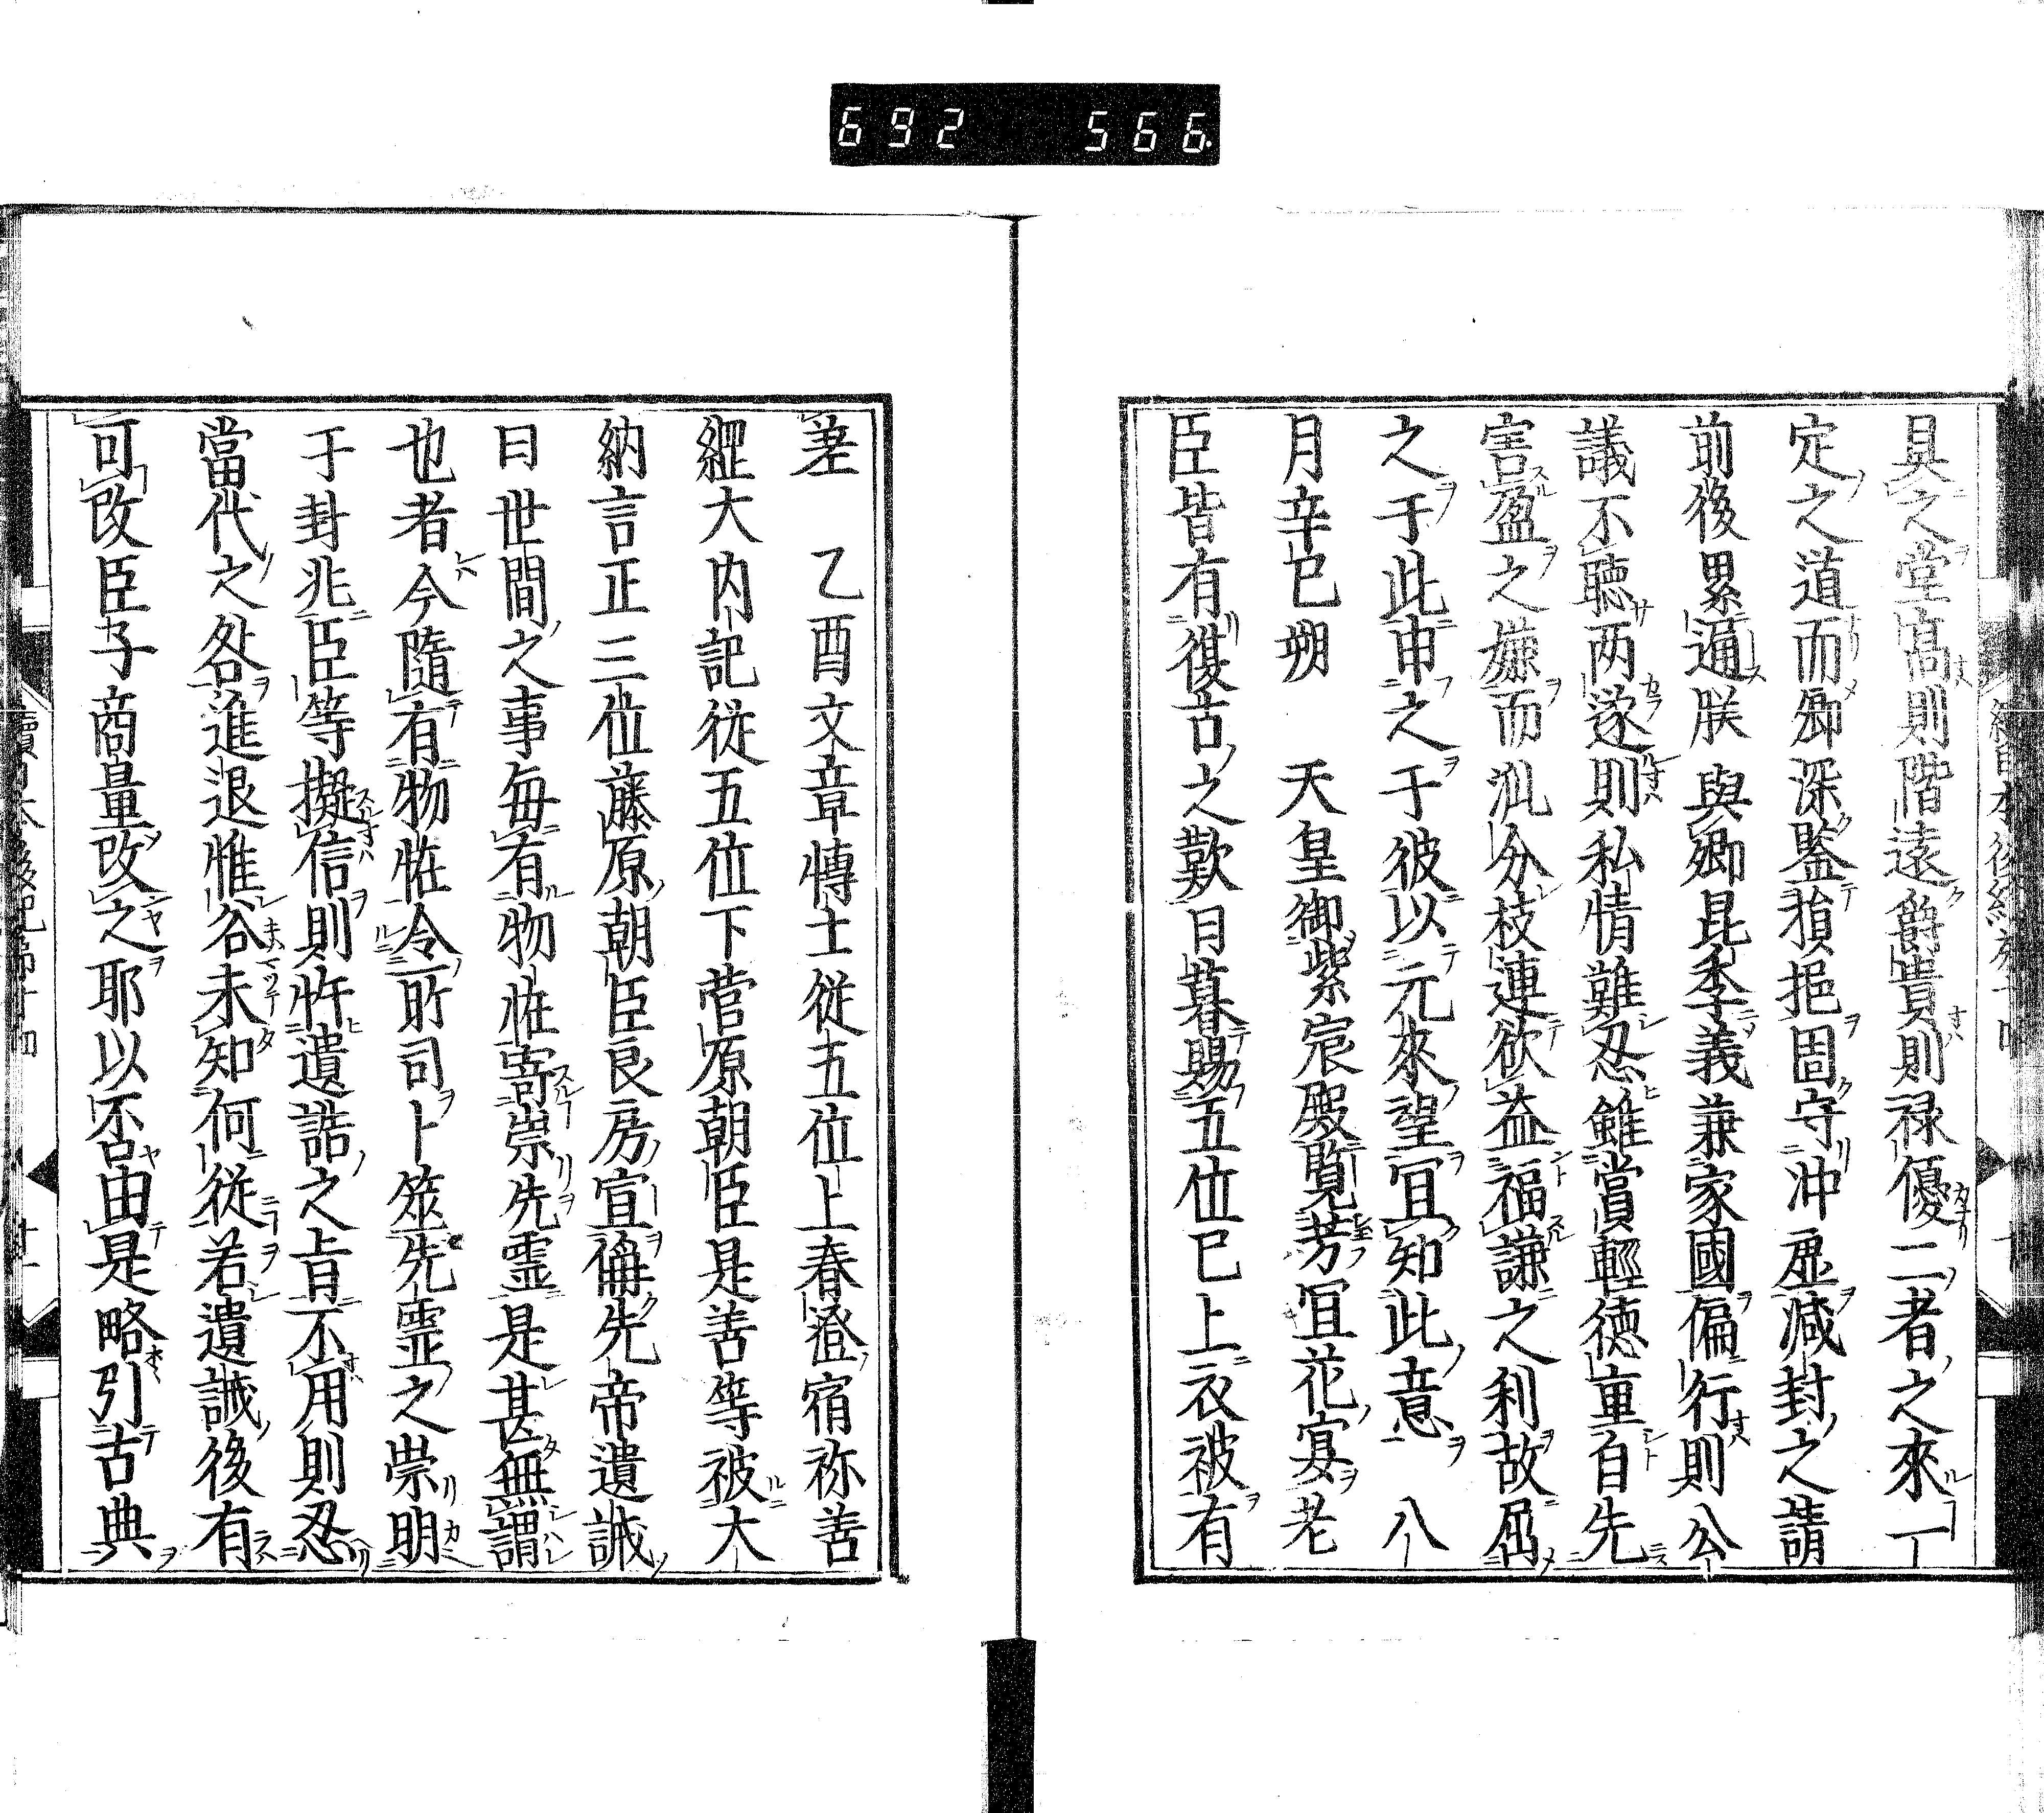 692 566
具之堂髙則階遠爵貴則禄優二者之來一
定之道而卿深鑒損挹固守沖虚減封之請
前後累逼朕與卿昆季義兼家國偏行則公
議不聴两遂則私情難忍雖賞輕徳重自先
害盈之嫌而沠分枝連欲益福謙之利故屈
之于此申之于彼以元來望冝知此意 八
月辛巳朔 天皇御紫宸殿覧芳冝花宴老
臣皆有復古之歎日暮賜五位已上衣被有
差 乙酉文章愽士従五位上春澄宿祢善
縄大内記従五位下菅原朝臣是善等被大
納言正三位藤原朝臣良房宣偁先帝遺誡
曰世間之事毎有物恠寄祟先霊是甚無謂
也者今隨有物恠令所司卜筮先霊之祟明
于卦兆臣等擬信則忤遺誥之旨不用則忍
當代之咎進退惟谷未知何従若遺誡後有
可改臣子商量改之耶以否由是略引古典